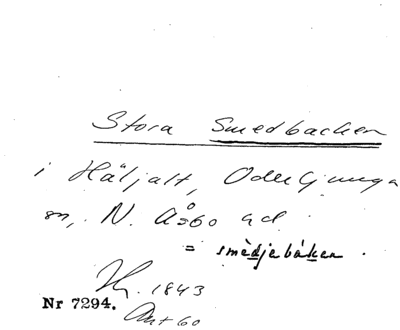 Stora Smedbacken
i Häljalt, Oderljunga
sn, N. Åsbo hd.
= smèdjebáken.
1843
Nr 7294.